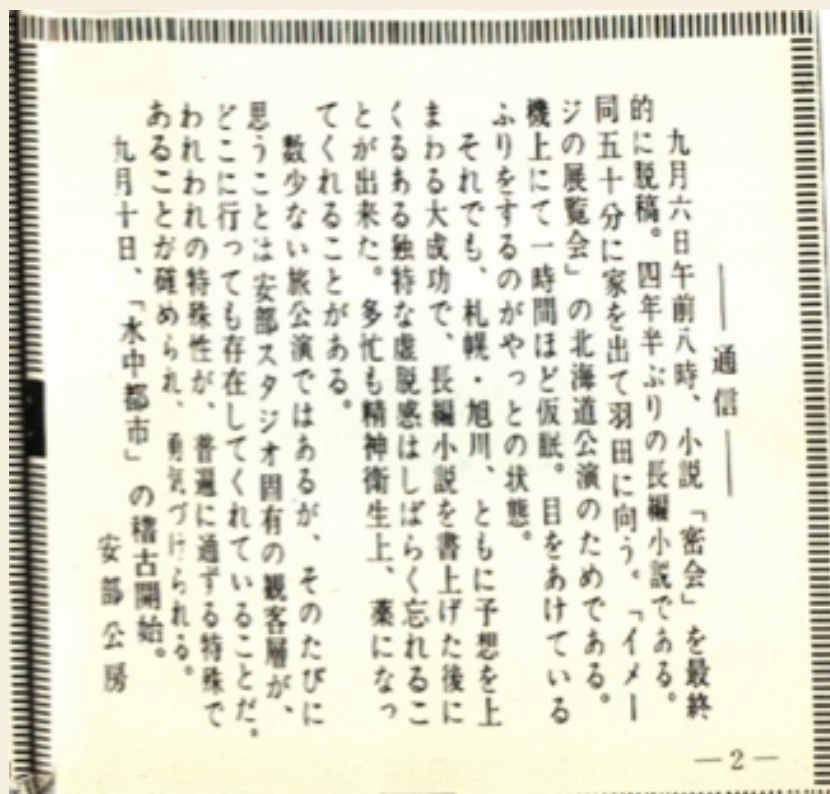 ――通信――
九月六日午前八時、小説「密会」を最終
的に脱稿。四年半ぶりの長編小説である。
同五十分に家を出て羽田に向う。「イメー
ジの展覧会」の北海道公演のためである。
機上にて一時間ほど仮眠。目をあけている
ふりをするのがやっとの状態。
それでも、札幌・旭川、ともに予想を上
まわる大成功で、長編小説を書上げた後に
くるある独特な虚脱感はしばらく忘れるこ
とが出来た。多忙も精神衛生上、薬になっ
てくれることがある。
数少ない旅公演ではあるが、そのたびに
思うことは安部スタジオ固有の観客層が、
どこに行っても存在してくれていることだ。
われわれの特殊性が、普遍に通ずる特殊で
あることが確められ、勇気づけられる。
九月十日、「水中都市」の稽古開始。
安部公房
―2―